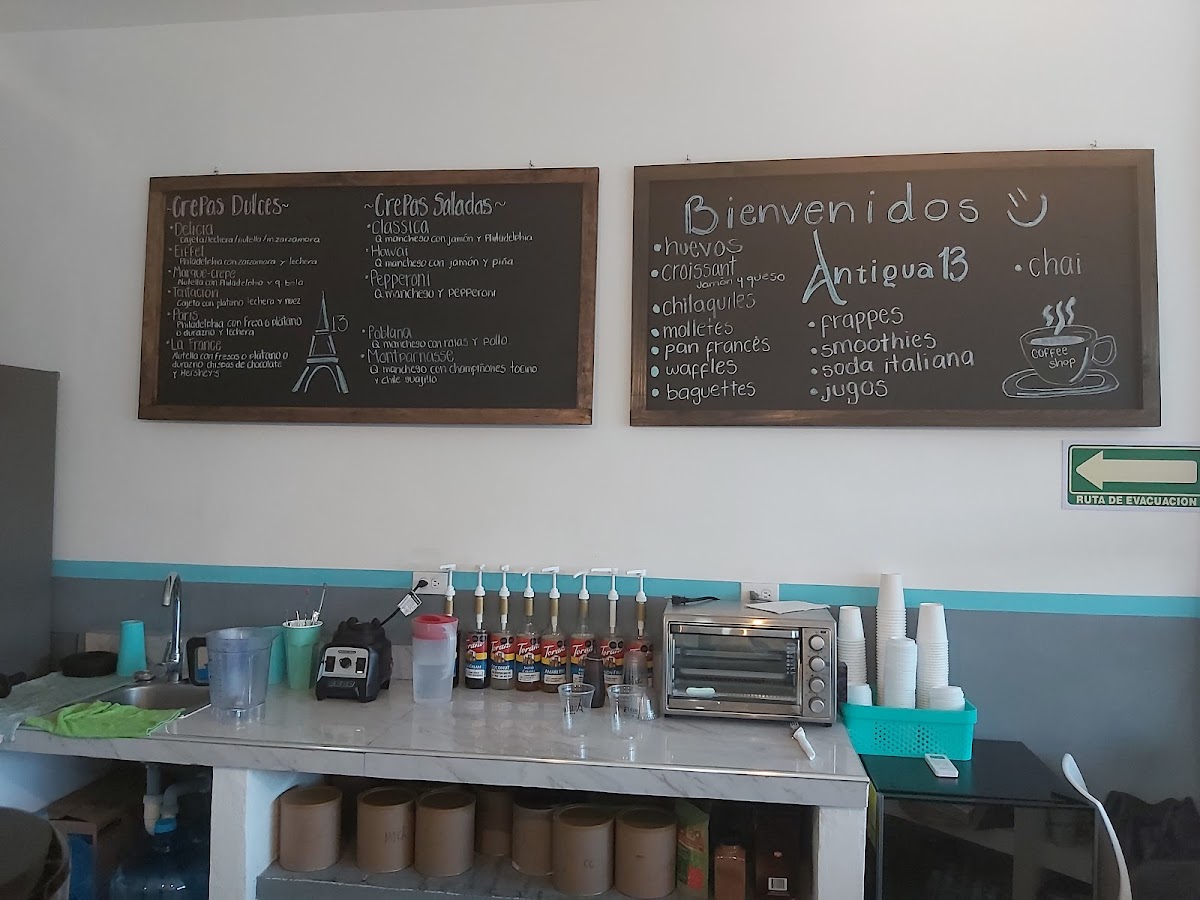 ~Crepas Dulces~
•Delicia
Cajeta/lechera/nutella/mzarzamora
•Eiffel
Philadelphia con zarzamora y lechera
•Marque-crepe
Nutella con Philadelphia y q. bola
•Tentación
Cajeta con platano lechera y nuez
•Paris
Philadelphia con fresa o platano
o durazno y lechera
•La France
Nutella con fresas o platano o
durazno chispas de chocolate
y Hersheys
13
~Crepas Saladas~
•Classica
Q manchego con jamón y Philadelphia
•Hawai
Q manchego con jamón y piña
•Pepperoni
Q manchego y pepperoni
•Poblana
Q manchego con rajas y pollo
•Montparnasse
Q manchego con champiñones tocino
y chile guajillo
Bienvenidos
•huevos
•croissant
Jamón y queso
•chilaquiles
•molletes
•pan francés
•waffles
•baguettes
Antigua 13
•frappes
•smoothies
•soda italiana
•jugos
•chai
Coffee
Shop
RUTA DE EVACUACION
Torani
Torani
Torani
Torani
Torani
Torani